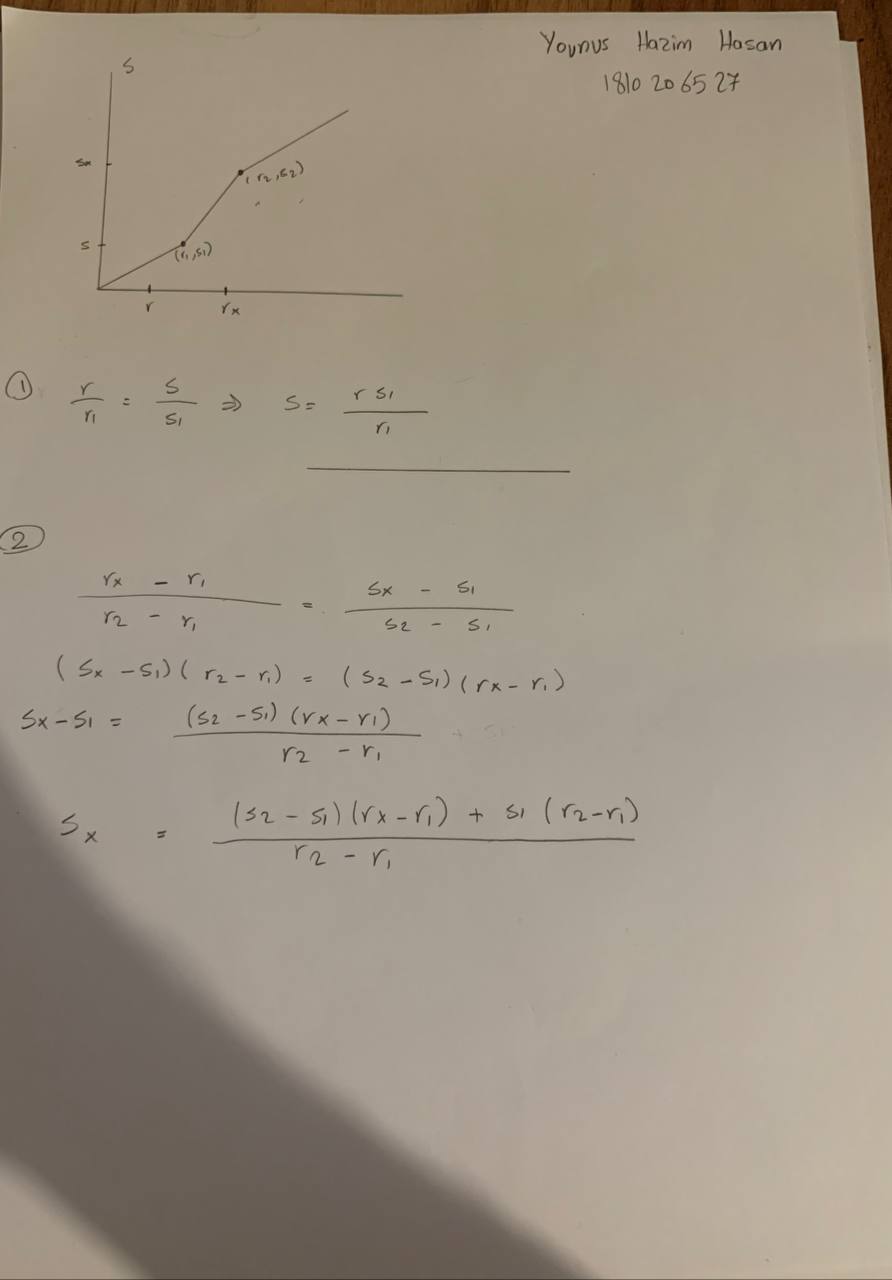 Younus Hazim Hasan
1810 20 65 27
s
sx
(r2,s2)
s
(r1,s1)
r rx
① r/r1 = s/s1 ⇒ s = r s1 / r1
②
rx - r1 / r2 - r1 = sx - s1 / s2 - s1
(sx - s1)(r2 - r1) = (s2 - s1)(rx - r1)
sx - s1 = (s2 - s1)(rx - r1) / r2 - r1
sx = (s2 - s1)(rx - r1) + s1 (r2 - r1) / r2 - r1